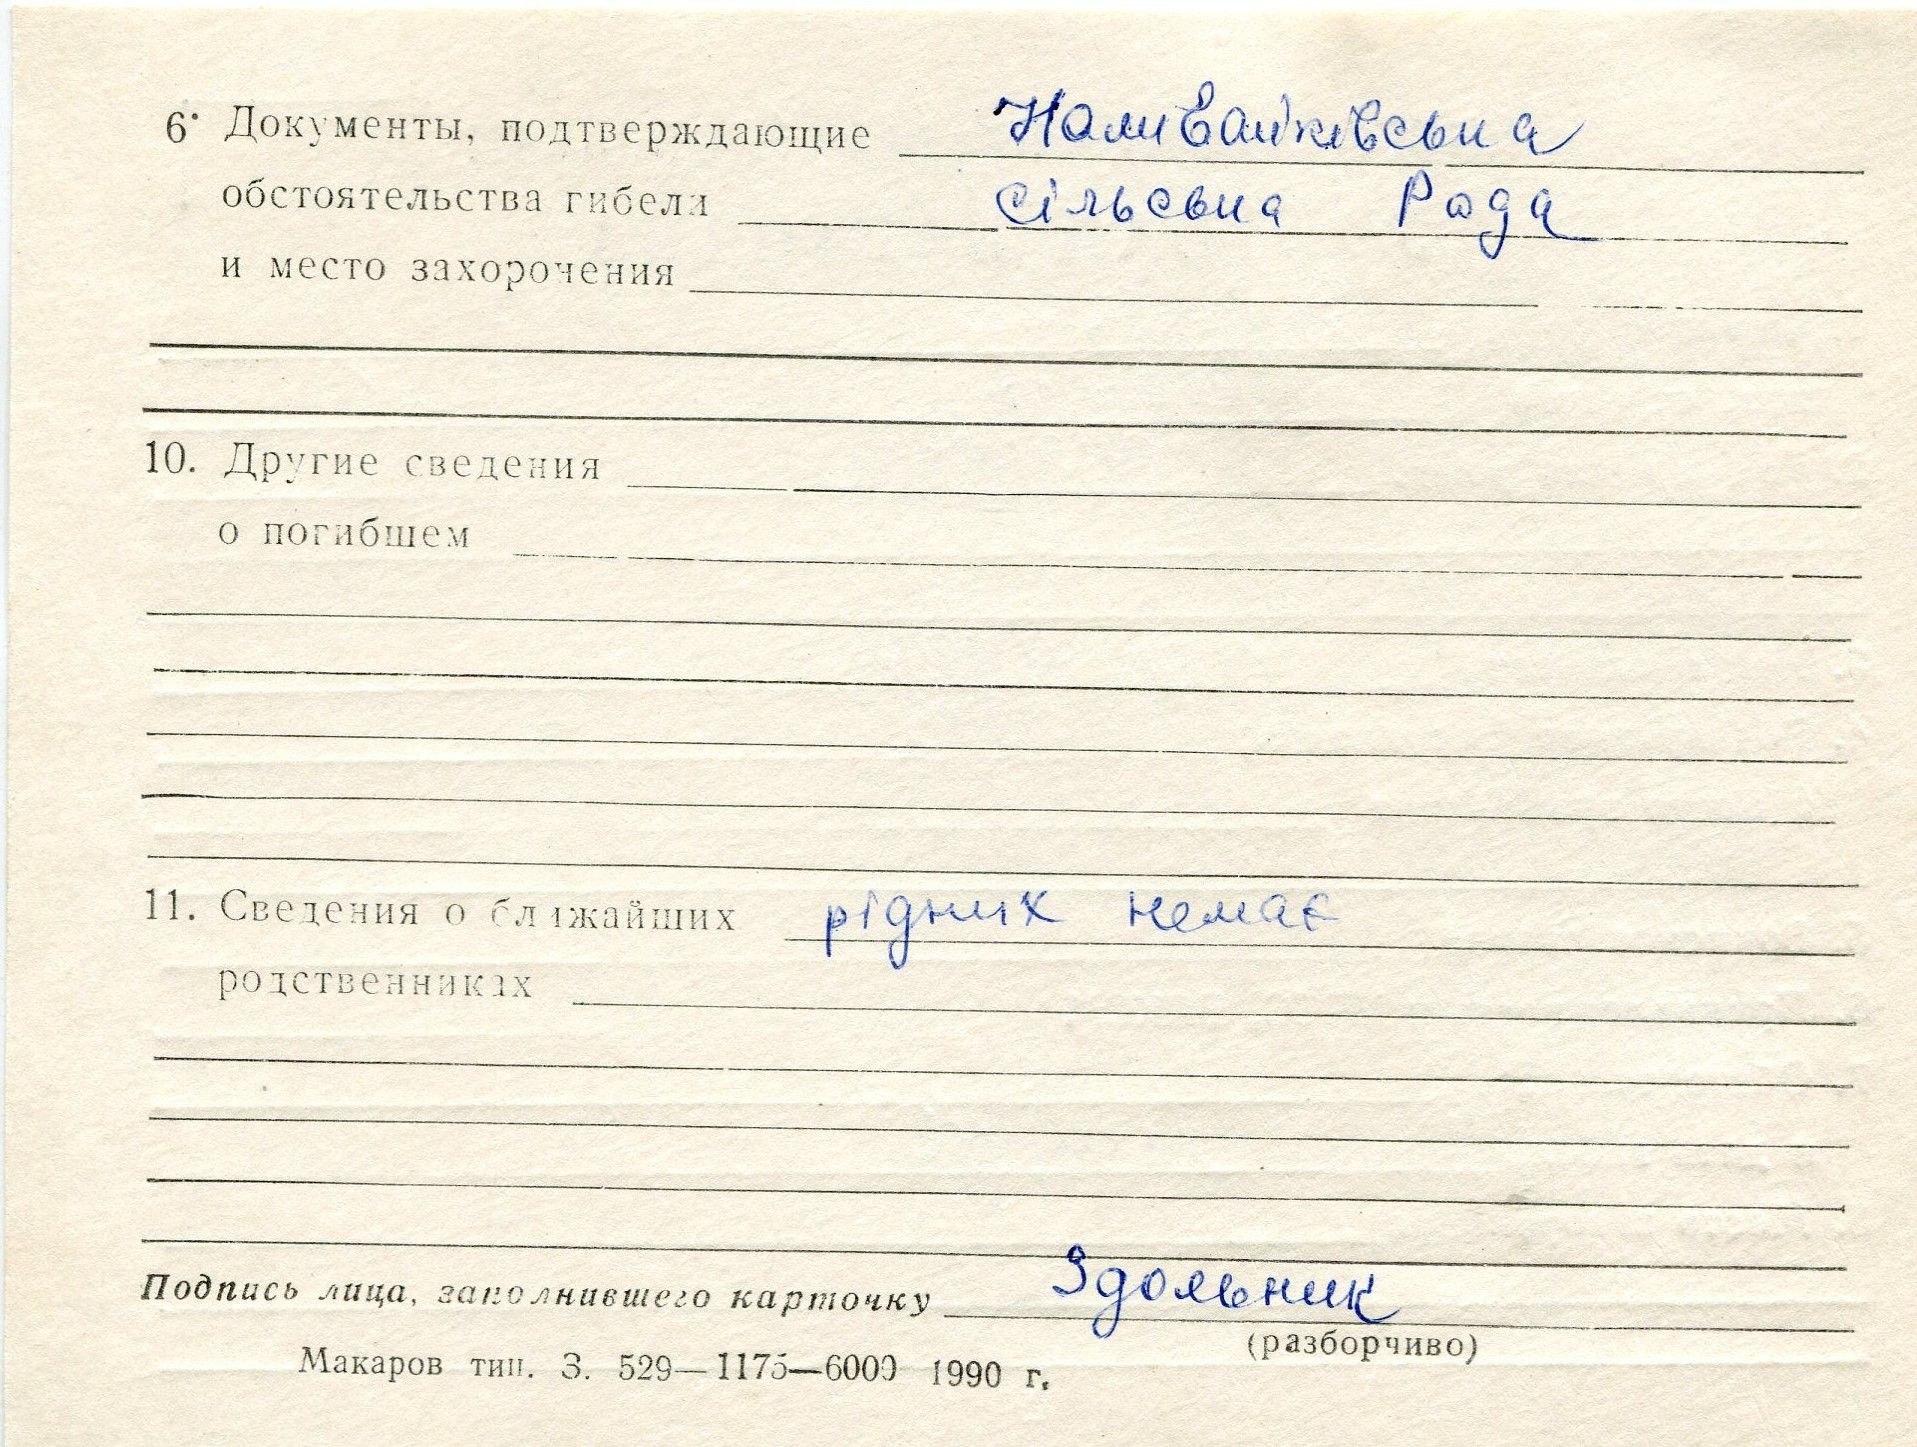 6. Документы, подтверждающие Наливайківська
обстоятельства гибели сільська Рада
и место захорочения
10. Другие сведения
о погибшем
11. Сведения о ближайших рідних немає
родственниках
Подпись лица, заполнившего карточку Здольник
(разборчиво)
Макаров тип. З. 529—1175—6000 1990 г.